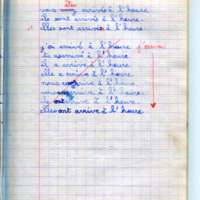 êtes
vous avez arrivés à l'heure.
ils sont arrivés à l'heure.
elles sont arrivées à l'heure.
j'ai arrivé à l'heure j'arrivai
tu as arrivé à l'heure.
il a arrivé à l'heure.
elle a arrivé à l'heure.
nous arrivé à l'heure.
vous arrivé à l'heure.
ils ont arrivé à l'heure.
elles ont arrivé à l'heure.